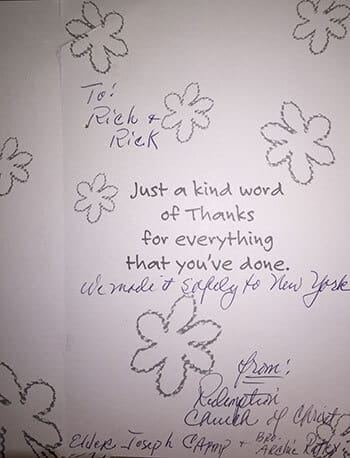 To:
Rich &
Rick
Just a kind word
of Thanks
for everything
that you've done.
We made it safely to New York
from:
Redemption
Church of Christ
Elder Joseph Camp & Bro. Archie